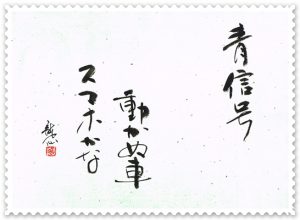 青信号
動かぬ車
スマホかな